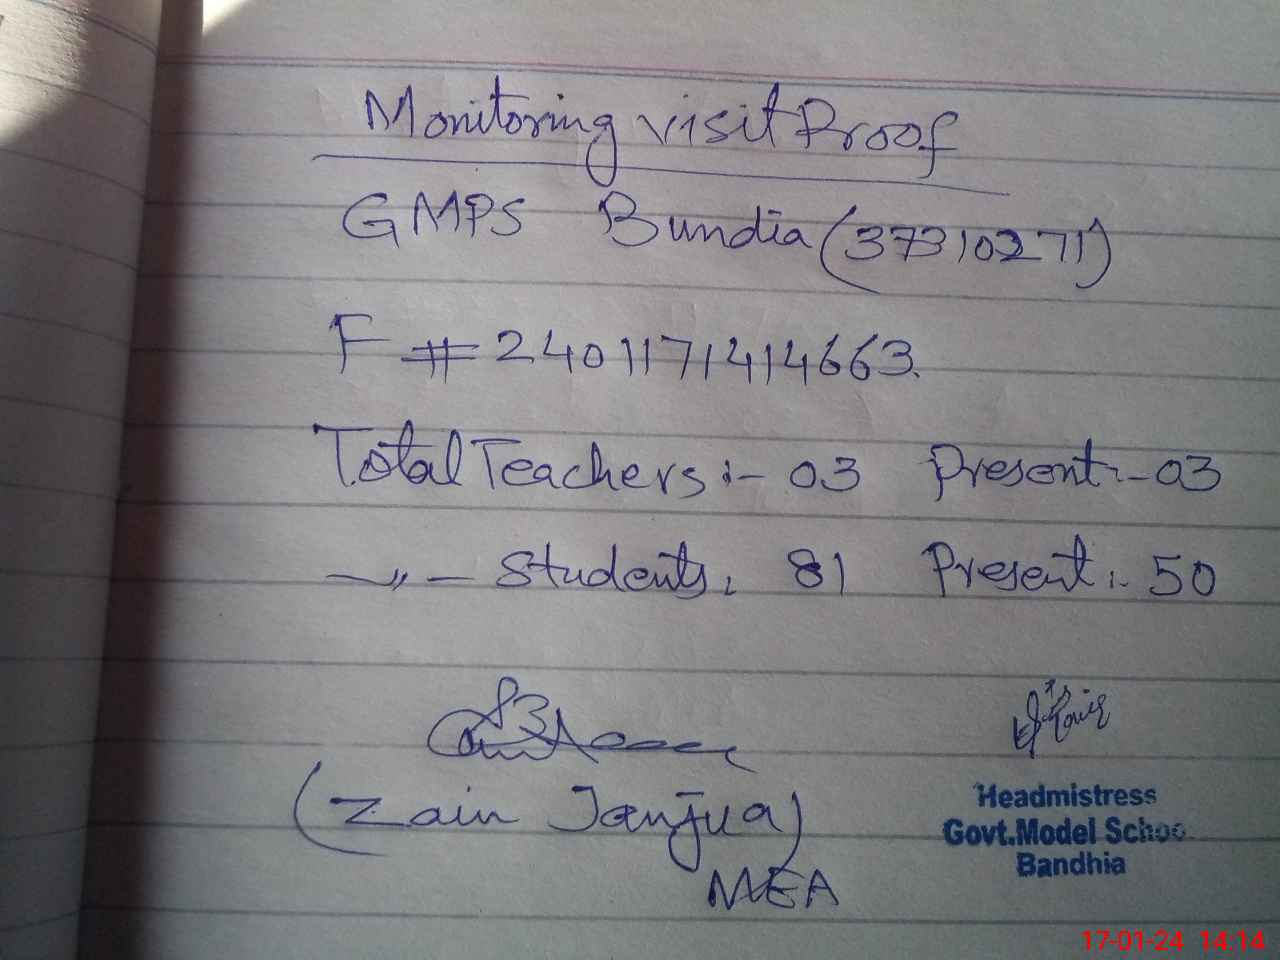 Monitoring visit Proof
GMPS Bundia (37310271)
F # 2401171414663.
Total Teachers :- 03 Present :- 03
–〃– Students : 81 Present :- 50
(Zain Janjua)
MEA
Headmistress
Govt.Model Schoo
Bandhia
17-01-24 14:14